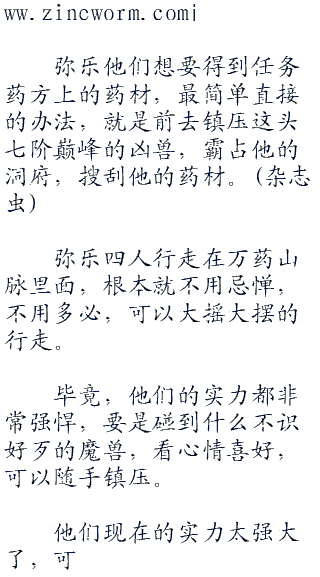 ww.zincworm.com¡
弥乐他们想要得到任务
药方上的药材，最简单直接
的办法，就是前去镇压这头
七阶巅峰的凶兽，霸占他的
洞府，搜刮他的药材。(杂志
虫)
弥乐四人行走在万药山
脉里面，根本就不用忌惮，
不用多必，可以大摇大摆的
行走。
毕竟，他们的实力都非
常强悍，要是碰到什么不识
好歹的魔兽，看心情喜好，
可以随手镇压。
他们现在的实力太强大
了，可